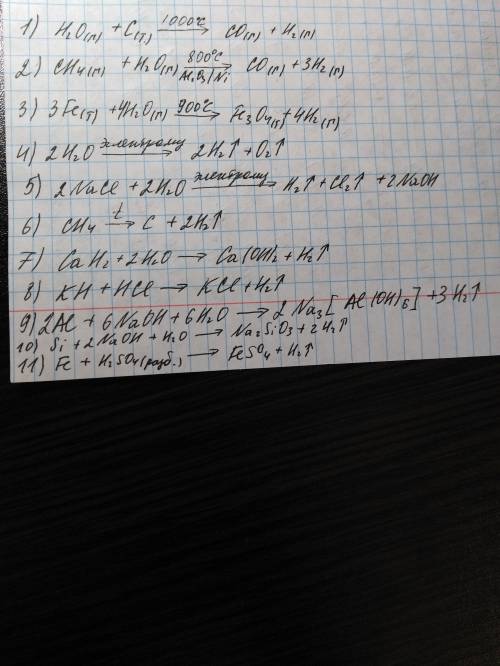 1) H₂O(г) + C(т) 1000°C → CO(г) + H₂(г)
2) CH₄(г) + H₂O(г) 800°C Al₂O₃/Ni → CO(г) + 3H₂(г)
3) 3Fe(т) + 4H₂O(г) 900°C → Fe₃O₄(т) + 4H₂(г)
4) 2H₂O → 2H₂↑ + O₂↑
5) 2NaCl + 2H₂O → H₂↑ + Cl₂↑ + 2NaOH
6) CH₄ t → C + 2H₂↑
7) CaH₂ + 2H₂O → Ca(OH)₂ + H₂↑
8) KH + HCl → KCl + H₂↑
9) 2Al + 6NaOH + 6H₂O → 2Na₃[Al(OH)₆] + 3H₂↑
10) Si + 2NaOH + H₂O → Na₂SiO₃ + 2H₂↑
11) Fe + H₂SO₄(разб.) → FeSO₄ + H₂↑